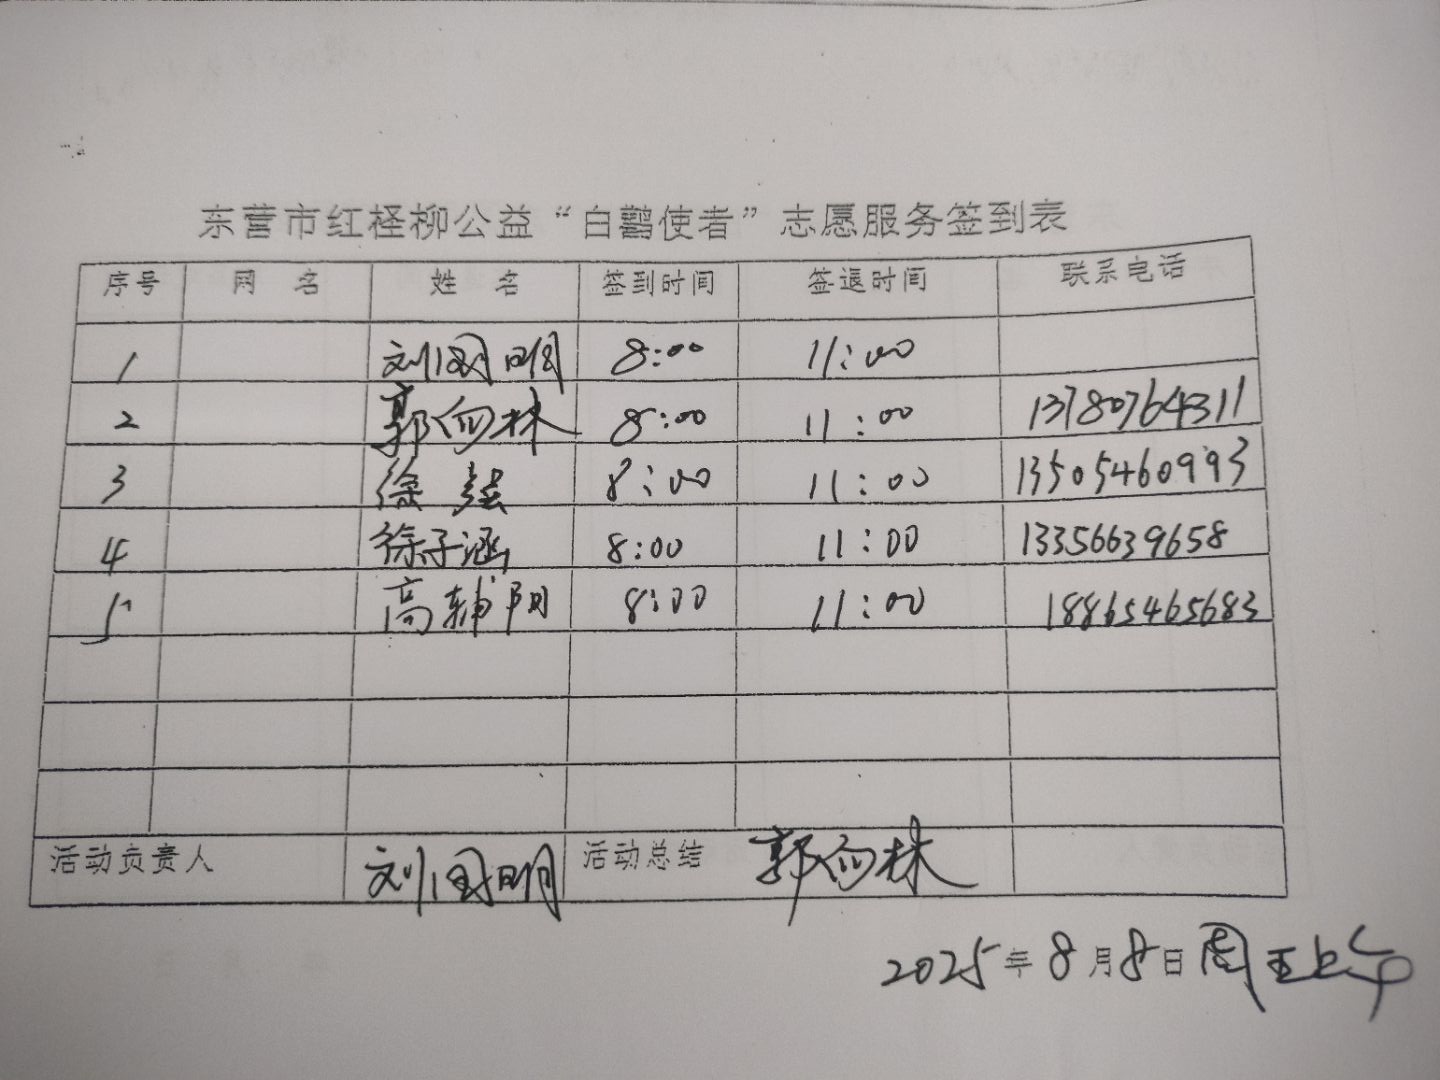 东营市红柽柳公益“白鹳使者”志愿服务签到表
序号 网 名 姓 名 签到时间 签退时间 联系电话
1 刘国明 8:00 11:00
2 郭向林 8:00 11:00 13780764311
3 徐 8:00 11:00 13505460993
4 徐子涵 8:00 11:00 13356639658
5 高辅阳 8:00 11:00 18865465683
活动负责人 刘国明 活动总结 郭向林
2025年8月8日周五上午